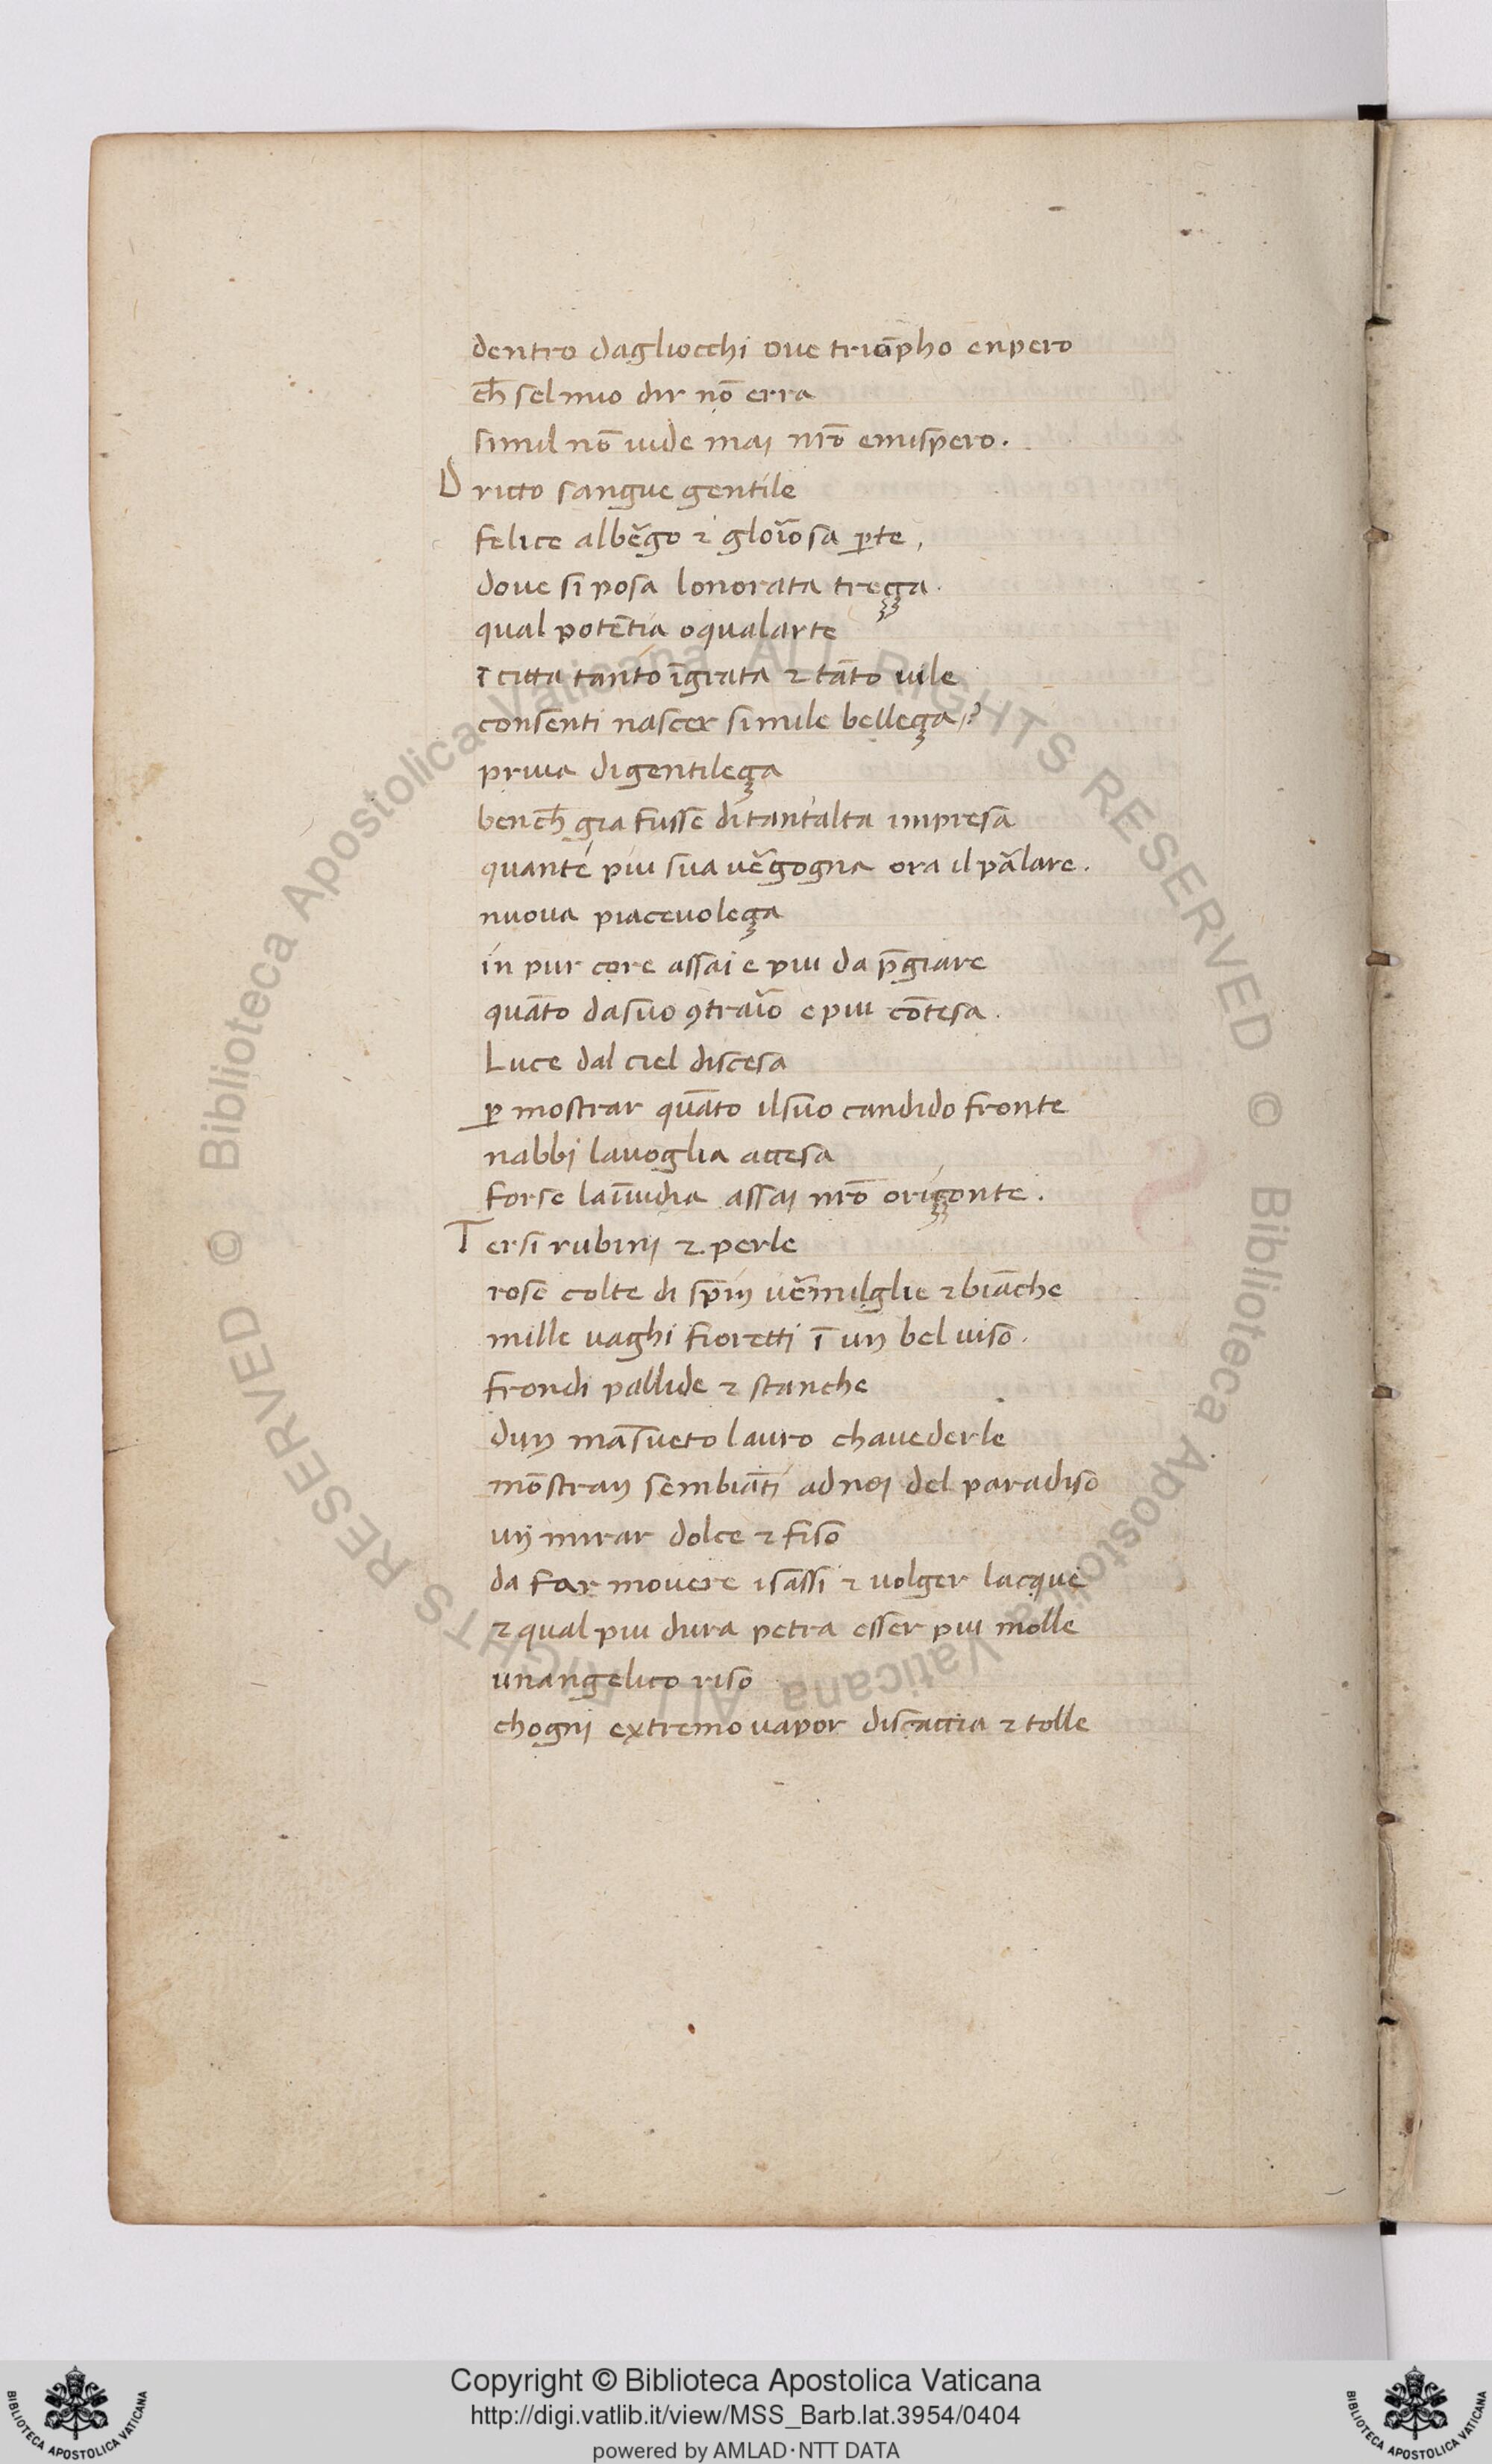 dentro dagliocchi oue triūpho enpero
ch̄ selmio dir nō erra
simil nō uide mai nr̄o emisp̄ero.
Dritto sangue gentile
felice alb̄ego ⁊ glor̄iosa ꝑte,
doue si posa lonorata treçça.
qual potētia o qualarte
ī citta tanto īgrata ⁊ tāto uile
consenti nascer simile belleça?
priua digentileça
bench̄ gia fusse di tantalta impresa
quante piu sua uēgogna ora il pālare.
nuoua piaceuoleça
in pur core assai e piu da p̄giare
quāto dasuo ꝯtraīo e piu cōtesa.
Luce dal ciel discesa
ꝑ mostrar quāto ilsuo candido fronte
nabbi lauoglia accesa
forse laīuidia assai nr̄o oriçonte.
Tersi rubini ⁊ perle
rose colte di sp̄in uēmilglie ⁊ biāche
mille uaghi fioretti ī un bel uiso.
frondi pallide ⁊ stanche
dun māsueto lauro chauederle
mōstran sembiāti ad noi del paradiso
un mirar dolce ⁊ fiso
da far mouere isassi ⁊ uolger lacque
⁊ qual piu dura petra esser piu molle
unangelico riso
chogni extremo uapor discaccia ⁊ tolle
© Biblioteca Apostolica Vaticana ALL RIGHTS RESERVED © Biblioteca Apostolica Vaticana ALL RIGHTS RESERVED
Copyright © Biblioteca Apostolica Vaticana
http://digi.vatlib.it/view/MSS_Barb.lat.3954/0404
powered by AMLAD·NTT DATA
BIBLIOTECA APOSTOLICA VATICANA
BIBLIOTECA APOSTOLICA VATICANA